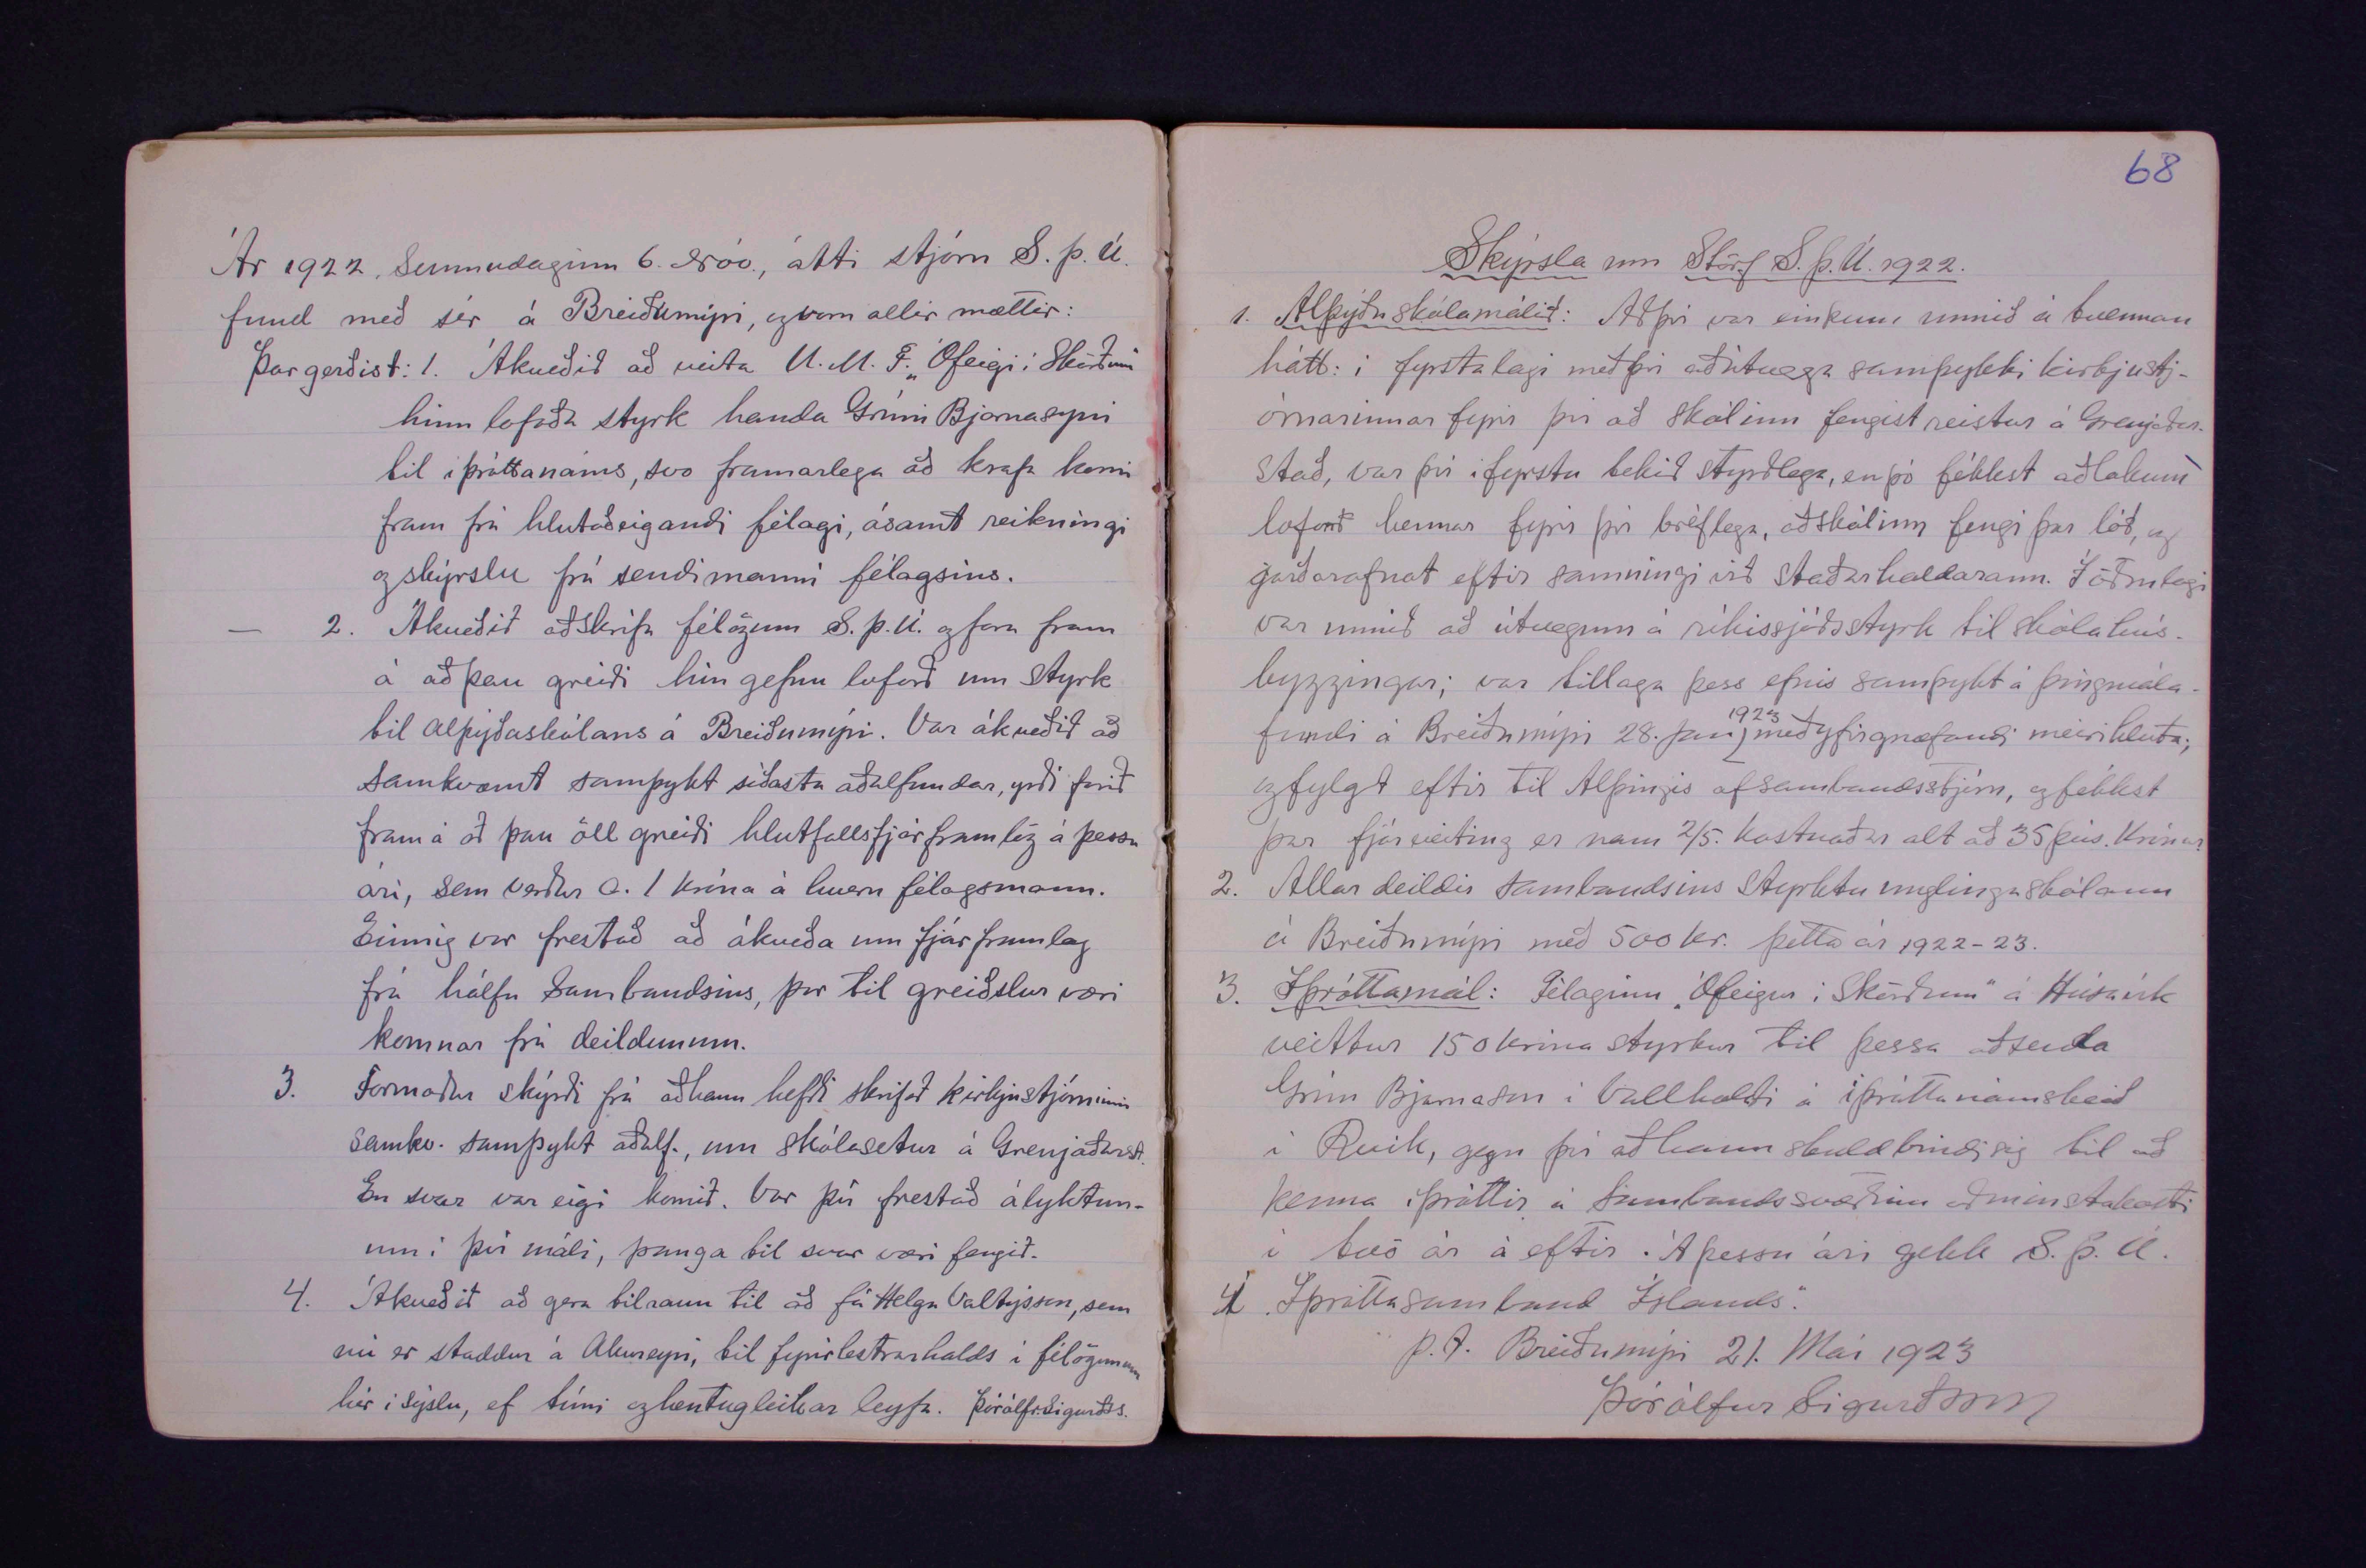 Ár 1922, Sunnudaginn 6. Nóv., átti stjórn S. þ. U.
fund með sér á Breiðumýri, og voru allir mættir:
Þar gerðist: 1. Ákveðið að veita U. M. F. „Ófeigi í Skörðum"
hinn lofaða styrk handa Grími Bjarnasyni
til íþróttanáms, svo framarlega að krafa komi
fram frá hlutaðeigandi félagi, ásamt reikningi
og skýrslu frá sendimanni félagsins.
— 2. Ákveðið að skrifa félögum S. þ. U. og fara fram
á að þau greiði hin gefnu loforð um styrk
til alþýðuskólans á Breiðumýri. Var ákveðið að
samkvæmt samþykt síðasta aðalfundar, yrði farið
fram á að þau öll greiði hlutfallsfjárframlög á þessu
ári, sem verður c. 1 króna á hvern félagsmann.
Einnig var frestað að ákveða um fjárframlag
frá hálfu Sambandsins, þar til greiðslur væri
komnar frá deildunum.
3. Formaður skýrði frá að hann hefði skrifað kirkjustjórninni
samkv. samþykt aðalf., um skólasetur á Grenjaðarst.
En svar var eigi komið. Var því frestað ályktun-
um í því máli, þanga til svar væri fengið.
4. Ákveðið að gera tilraun til að fá Helga Valtýsson, sem
nú er staddur á Akureyri, til fyrirlestrarhalds í félögunum
hér í sýslu, ef tími og hentugleikar leyfa. Þórólfr. Sigurðs.
68
Skýrsla um Störf S. þ. U. 1922.
1. Alþýðuskólamálið: Að því var einkum unnið á tvennan
hátt: í fyrsta lagi með því að útvega samþykki kirkjustj-
órnarinnar fyrir því að skólinn fengist reistur á Grenjaðar-
stað, var því í fyrstu tekið styrðlega, en þó fékkst að lokum
loforð hennar fyrir því bréflega, að skólinn fengi þar lóð, og
jarðarafnot eftir samningi við staðarhaldarann. Í öðru lagi
var unnið að útvegum á ríkissjóðsstyrk til skólahús-
byggingar; var tillaga þess efnis samþykt á þingmála-
fundi á Breiðumýri 28. jan, 1923 með yfirgnæfandi meirihluta;
og fylgt eftir til Alþingis af sambandsstjórn, og fékkst
þar fjárveiting er nam 2/5. kostnaðar alt að 35 þús. krónur
2. Allar deildir sambandsins styrktu unglingaskólann
á Breiðumýri með 500 kr. þetta ár 1922-23.
3. Íþróttamál: Félaginu „Ófeigur í Skörðum" á Húsavík
veittur 150 króna styrkur til þessa að senda
Grím Bjarnason í Vallholti á íþróttanámskeið
í Rvík, gegn því að hann skuldbindi sig til að
kenna íþróttir á Sambandssvæðinu að minsta kosti
í tvö ár á eftir. Á þessu ári gekk S. þ. U.
4 í „Íþróttasamband Íslands".
p.t. Breiðumýri 21. Maí 1923
Þórólfur Sigurðsson